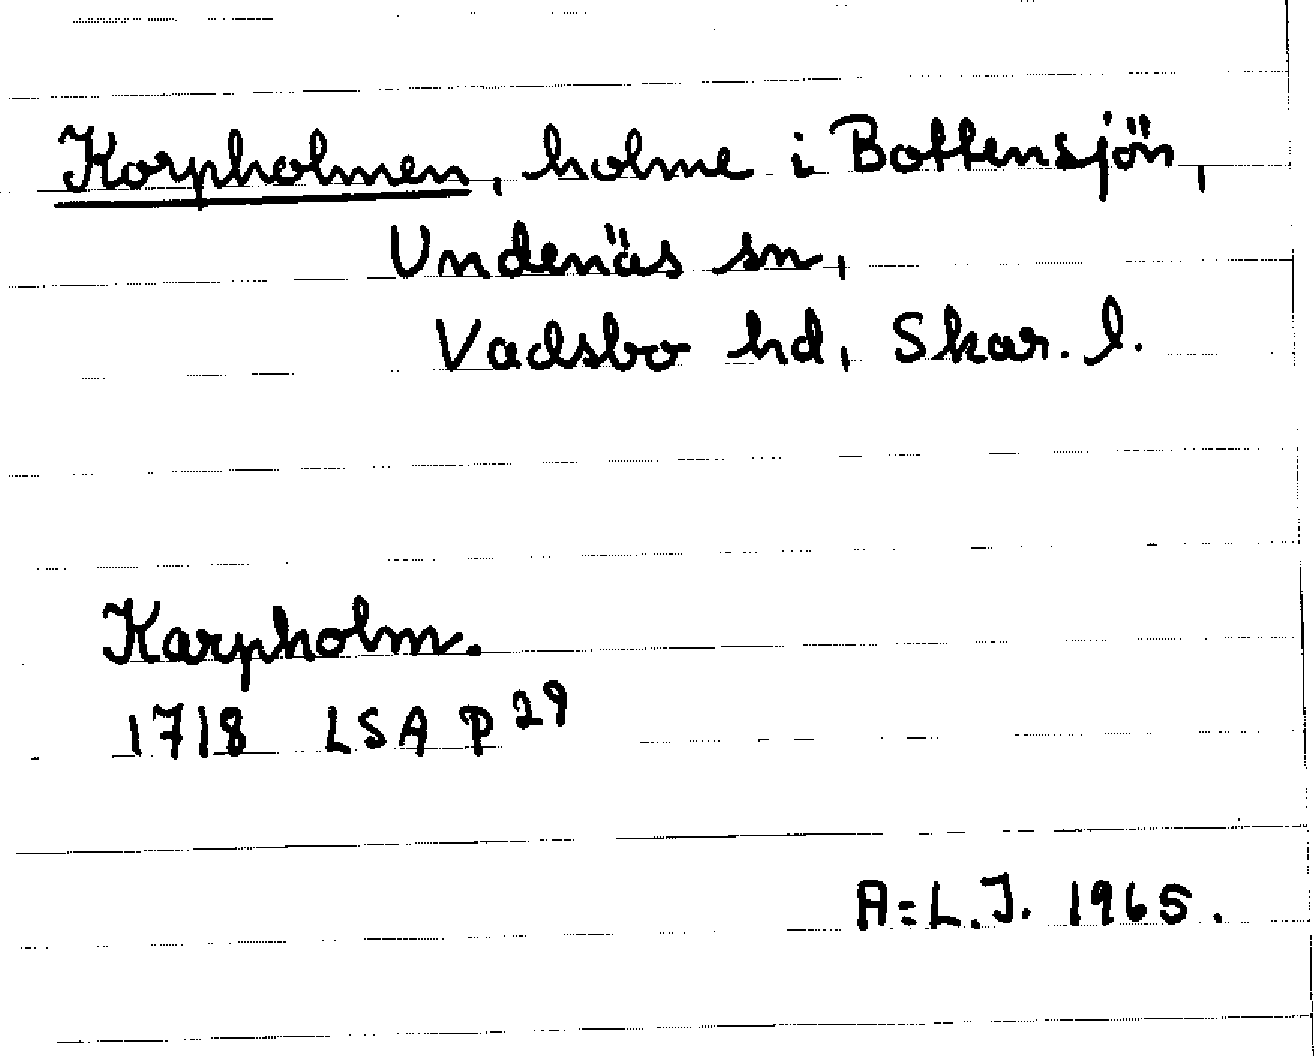 Korpholmen, holme i Bottensjön,
Undenäs sn,
Vadsbo hd, Skar. l.
Karpholm.
1718 LSA P 29
A=L.J. 1965.